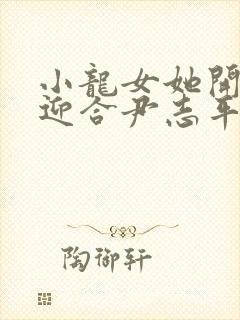 小龍女她開
迎合尹志平
陶御軒